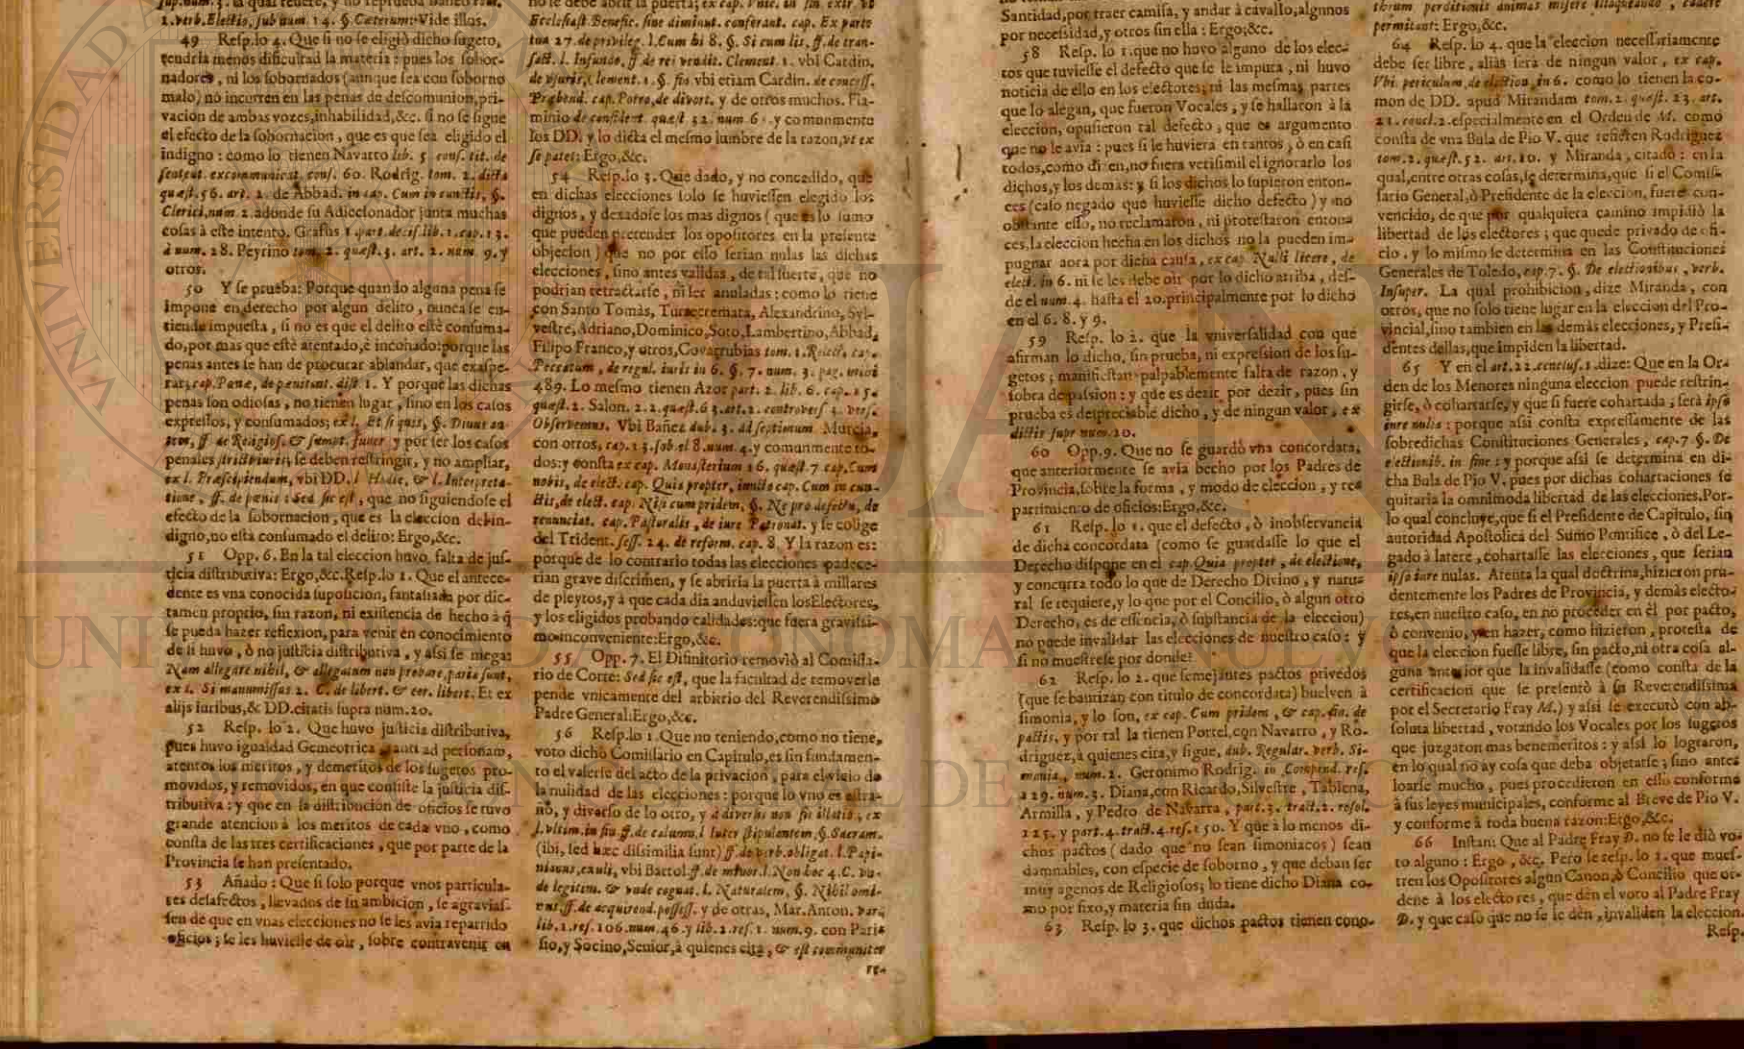 2. verb. Electio, sub num. 14. §. Cæterum: Vide illos.
49 Resp. lo 4. Que si no se eligiò dicho sugeto,
tendria menos dificultad la materia: pues los sobor-
nadores, ni los sobornados (aunque sea con soborno
malo) no incurren en las penas de descomunion, pri-
vacion de ambas vozes, inhabilidad, &c. si no se sigue
el efecto de la sobornacion, que es que sea eligido el
indigno: como lo tienen Navarro lib. 5 cons. tit. de
sentent. excommunicat. cons. 60. Rodrig. tom. 2. dicta
quæst. 56. art. 2. de Abbad. in cap. Cum in cunctis, §.
Clerici, num. 2. adonde su Adiccionador junta muchas
cosas à este intento. Grafus 1. part. decis. lib. 1. cap. 13.
à num. 28. Peyrino tom. 2. quæst. 3. art. 2. num. 9. y
otros.
50 Y se prueba: Porque quando alguna pena se
impone en derecho por algun delito, nunca se en-
tiende impuesta, si no es que el delito estè consuma-
do, por mas que estè atentado, è incohado: porque las
penas antes se han de procurar ablandar, que exaspe-
rar; cap. Pœnæ, de pœnitent. dist. 1. Y porque las dichas
penas son odiosas, no tienen lugar, sino en los casos
expressos, y consumados; ex l. Et si quis, §. Divus
ff. de Religios. & sumpt. funer. y por ser los casos
penales stricti iuris, se deben restringir, y no ampliar,
ex l. Præscipiendum, vbi DD. l. Hodie, & l. Interpreta-
tione, ff. de pœnis: Sed sic est, que no siguiendose el
efecto de la sobornacion, que es la eleccion del in-
digno, no està consumado el delito: Ergo, &c.
51 Opp. 6. En la tal eleccion huvo falta de jus-
ticia distributiva: Ergo, &c. Resp. lo 1. Que el antece-
dente es vna conocida suposicion, fantasiada por dic-
tamen proprio, sin razon, ni existencia de hecho à q̃
se pueda hazer reflexion, para venir en conocimiento
de si huvo, ò no justicia distributiva, y assi se niega:
Nam allegare nihil, & allegatum non probare, paria sunt,
ex l. Si manumissus 2. C. de libert. & eor. libert. Et ex
alijs iuribus, & DD. citatis supra num. 20.
52 Resp. lo 2. Que huvo justicia distributiva,
pues huvo igualdad Geometrica quanti ad personam,
atentos los meritos, y demeritos de los sugetos pro-
movidos, y removidos, en que consiste la justicia dis-
tributiva: y que en la distribucion de oficios se tuvo
grande atencion à los meritos de cada vno, como
consta de las tres certificaciones, que por parte de la
Provincia se han presentado.
53 Añado: Que si solo porque vnos particula-
res desafectos, llevados de su ambicion, se agravias-
sen de que en vnas elecciones no se les avia repartido
oficios; se les huviesse de oir, sobre contravenir en
no se debe abrir la puerta; ex cap.
Ecclesiast. Benefic. sine diminut. conferant. cap. Ex parte
tua 27. de privileg. l. Cum hi 8. §. Si cum lis, ff. de tran-
sact. l. Insundo, ff. de rei vendit. Clement. 1. vbi Cardin.
de vsuris, Clement. 1. §. fin vbi etiam Cardin. de concess.
Præbend. cap. Porro, de divort. y de otros muchos. Fla-
minio de confident. quæst 32. num. 6. y comunmente
los DD. y lo dicta el mesmo lumbre de la razon, vt ex
se patet: Ergo, &c.
54 Resp. lo 3. Que dado, y no concedido, que
en dichas elecciones solo se huviessen elegido los
dignos, y dexadose los mas dignos (que es lo sumo
que pueden pretender los opositores en la presente
objecion) que no por esso serian nulas las dichas
elecciones, sino antes validas, de tal suerte, que no
podrian retractarse, ni ser anuladas: como lo tiene
con Santo Tomàs, Turrecremata, Alexandrino, Syl-
vestre, Adriano, Dominico, Soto, Lambertino, Abbad,
Filipo Franco, y otros, Covarrubias tom. 1. Relect. ca.
Peccatum, de regul. iuris in 6. §. 7. num. 3. pag. mihi
489. Lo mesmo tienen Azor part. 2. lib. 6. cap. 15.
quæst. 2. Salon. 2. 2. quæst. 63. art. 2. controvers 2. vers.
Observemus. Vbi Bañez dub. 3. ad septimum Murcia,
con otros, cap. 13. sob. el 8. num. 4. y comunmente to-
dos: y consta ex cap. Monasterium 16. quæst. 7 cap. Cum
nobis, de elect. cap. Quia propter, iuncto cap. Cum in cun-
ctis, de elect. cap. Nisi cum pridem, §. Ne pro defectu, de
renunciat. cap. Pastoralis, de iure Patronat. y se colige
del Trident. sess. 24. de reform. cap. 8. Y la razon es:
porque de lo contrario todas las elecciones padece-
rian grave discrimen, y se abriria la puerta à millares
de pleytos, y à que cada dia anduviessen los Electores,
y los eligidos probando calidades: que fuera gravissi-
mo inconveniente: Ergo, &c.
55 Opp. 7. El Difinitorio removiò al Comissa-
rio de Corte: Sed sic est, que la facultad de removerle
pende vnicamente del arbitrio del Reverendissimo
Padre General: Ergo, &c.
56 Resp. lo 1. Que no teniendo, como no tiene,
voto dicho Comissario en Capitulo, es sin fundamen-
to el valerse del acto de la privacion, para el vicio de
la nulidad de las elecciones: porque lo vno es estra-
ño, y diverso de lo otro, y à diversis non fit illatio, ex
l. vltim. in fin ff. de calumn. l Inter stipulantem, §. Sacram.
(ibi, sed hæc dissimilia sunt) ff. de verb. obligat. l. Papi-
nianus, exuli, vbi Bartol ff. de minor. l. Non hoc 4. C. vn-
de legitim. & vnde cognat. l. Naturalem, §. Nihil omi-
nus, ff. de acquirend. possess. y de otras, Mar. Anton. Var.
lib. 1. res. 106. num. 46. y lib. 2. res. 1. num. 9. con Pari-
sio, y Socino, Senior, à quienes cita, & est communiter
re-
Santidad, por traer camisa, y andar à cavallo, algunos
por necessidad, y otros sin ella: Ergo, &c.
58 Resp. lo 1. que no huvo alguno de los elec-
tos que tuviesse el defecto que se le imputa, ni huvo
noticia de ello en los electores; ni las mesmas partes
que lo alegan, que fueron Vocales, y se hallaron à la
eleccion, opusieron tal defecto, que es argumento
que no le avia: pues si le huviera en tantos, ò en casi
todos, como dizen, no fuera verisimil el ignorarlo los
dichos, y los demàs: y si los dichos lo supieron enton-
ces (caso negado que huviesse dicho defecto) y no
obstante esso, no reclamaron, ni protestaron enton-
ces, la eleccion hecha en los dichos no la pueden im-
pugnar aora por dicha causa, ex cap. Nulli licere, de
elect. in 6. ni se les debe oir por lo dicho arriba, des-
de el num. 4. hasta el 20. principalmente por lo dicho
en el 6. 8. y 9.
59 Resp. lo 2. que la vniversalidad con que
afirman lo dicho, sin prueba, ni expression de los su-
getos; manifiestan palpablemente falta de razon, y
sobra de passion: y que es dezir por dezir, pues sin
prueba es despreciable dicho, y de ningun valor, ex
dictis supr num. 20.
60 Opp. 9. Que no se guardò vna concordata,
que anteriormente se avia hecho por los Padres de
Provincia, sobre la forma, y modo de eleccion, y re-
partimiento de oficios: Ergo, &c.
61 Resp. lo 1. que el defecto, ò inobservancia
de dicha concordata (como se guardasse lo que el
Derecho dispone en el cap. Quia propter, de electione,
y concurra todo lo que de Derecho Divino, y natu-
ral se requiere, y lo que por el Concilio, ò algun otro
Derecho, es de essencia, ò substancia de la eleccion)
no puede invalidar las elecciones de nuestro caso: y
si no muestrese por donde?
62 Resp. lo 2. que semejantes pactos privedos
(que se bautizan con titulo de concordata) huelven à
simonia, y lo son, ex cap. Cum pridem, & cap. fin. de
pactis, y por tal la tienen Portel, con Navarro, y Ro-
driguez, à quienes cita, y sigue, dub. Regular. verb. Si-
monia, num. 2. Geronimo Rodrig. in Compend. res.
129. num. 3. Diana, con Ricardo, Silvestre, Tabiena,
Armilla, y Pedro de Navarra, part. 3. tract. 2. resol.
225. y part. 4. tract. 4. res. 150. Y que à lo menos di-
chos pactos (dado que no sean simoniacos) sean
damnables, con especie de soborno, y que deban ser
muy agenos de Religiosos; lo tiene dicho Diana co-
mo por fixo, y materia sin duda.
63 Resp. lo 3. que dichos pactos tienen cono-
thrum perditionis animas misere illaqueando, cadere
permitant: Ergo, &c.
64 Resp. lo 4. que la eleccion necessariamente
debe ser libre, aliàs serà de ningun valor, ex cap.
Vbi periculum, de election, in 6. como lo tienen la co-
mon de DD. apud Mirandam tom. 2. quæst. 23. art.
21. concl. 2. especialmente en el Orden de M. como
consta de vna Bula de Pio V. que refieren Rodriguez
tom. 2. quæst. 52. art. 10. y Miranda, citado: en la
qual, entre otras cosas, se determina, que si el Comis-
sario General, ò Presidente de la eleccion, fuere con-
vencido, de que por qualquiera camino impidiò la
libertad de los electores; que quede privado de ofi-
cio. y lo mismo se determina en las Constituciones
Generales de Toledo, cap. 7. §. De electionibus, verb.
Insuper. La qual prohibicion, dize Miranda, con
otros, que no solo tiene lugar en la eleccion del Pro-
vincial, sino tambien en las demàs elecciones, y Presi-
dentes dellas, que impiden la libertad.
65 Y en el art. 22. conclus. 1. dize: Que en la Or-
den de los Menores ninguna eleccion puede restrin-
girse, ò cohartarse, y que si fuere cohartada; serà ipso
iure nulla: porque assi consta expressamente de las
sobredichas Constituciones Generales, cap. 7 §. De
electionib. in fine: y porque assi se determina en di-
cha Bula de Pio V. pues por dichas cohartaciones se
quitaria la omnimoda libertad de las elecciones. Por-
lo qual concluye, que si el Presidente de Capitulo, sin
autoridad Apostolica del Sumo Pontifice, ò del Le-
gado à latere, cohartasse las elecciones, que serian
ipso iure nulas. Atenta la qual doctrina, hizieron pru-
dentemente los Padres de Provincia, y demàs electo-
res, en nuestro caso, en no proceder en èl por pacto,
ò convenio, y en hazer, como hizieron, protesta de
que la eleccion fuesse libre, sin pacto, ni otra cosa al-
guna anterior que la invalidasse (como consta de la
certificacion que se presentò à su Reverendissima
por el Secretario Fray M.) y assi se executò con ab-
soluta libertad, votando los Vocales por los sugetos
que juzgaron mas benemeritos: y assi lo lograron,
en lo qual no ay cosa que deba objetarse; sino antes
loarse mucho, pues procedieron en ello conforme
à sus leyes municipales, conforme al Breve de Pio V.
y conforme à toda buena razon: Ergo, &c.
66 Instan: Que al Padre Fray D. no se le diò vo-
to alguno: Ergo, &c. Pero se resp. lo 1. que mues-
tren los Opositores algun Canon, ò Concilio que or-
dene à los electores, que dèn el voto al Padre Fray
D. y que caso que no se le dèn, invaliden la eleccion.
Resp.